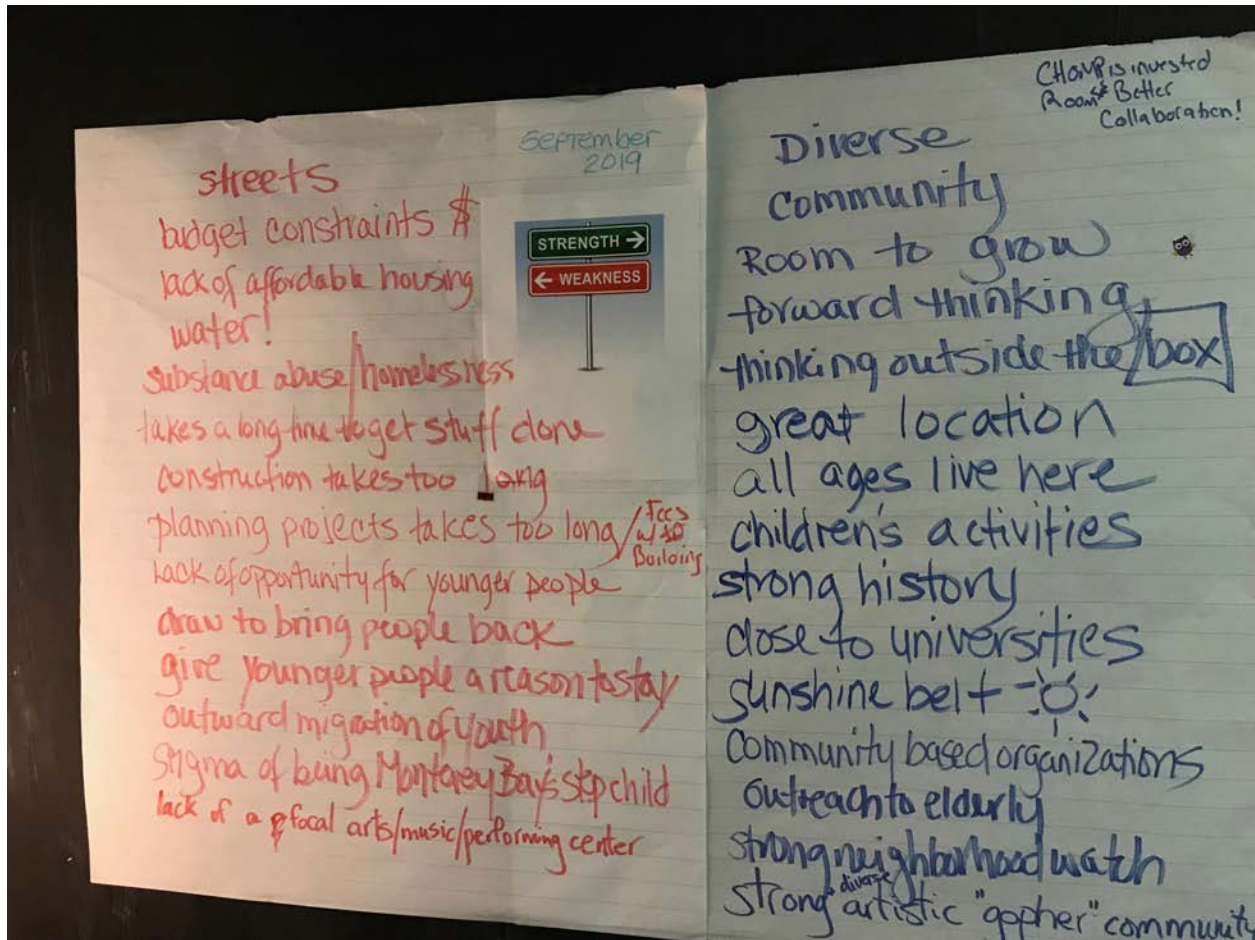 September
2019
STRENGTH →
← WEAKNESS
streets
budget constraints $
lack of affordable housing
water!
substance abuse/homelessness
takes a long time to get stuff done
construction takes too long
planning projects takes too long/Fees
w/
Building
Lack of opportunity for younger people
draw to bring people back
give younger people a reason to stay
outward migration of youth
Stigma of being Monterey Bay's step child
lack of a focal arts/music/performing center
CHOMP is invested
Room Better
Collaboration!
Diverse
Community
Room to grow
forward thinking
thinking outside the box
great location
all ages live here
children's activities
strong history
close to universities
sunshine belt
Community based organizations
outreach to elderly
strong neighborhood watch
strong diverse artistic "gopher" community